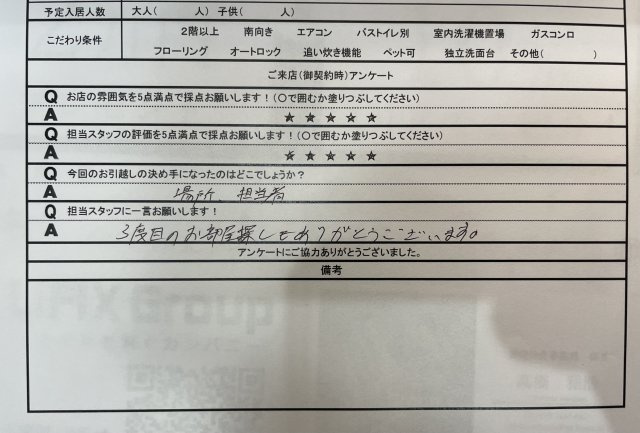 予定入居人数 大人( 人) 子供( 人)
こだわり条件 2階以上 南向き エアコン バストイレ別 室内洗濯機置場 ガスコンロ
フローリング オートロック 追い炊き機能 ペット可 独立洗面台 その他( )
ご来店(御契約時)アンケート
Q お店の雰囲気を5点満点で採点お願いします!(〇で囲むか塗りつぶしてください)
A ★ ★ ★ ★ ★
Q 担当スタッフの評価を5点満点で採点お願いします!(〇で囲むか塗りつぶしてください)
A ★ ★ ★ ★ ★
Q 今回のお引越しの決め手になったのはどこでしょうか?
A 場所、担当者
Q 担当スタッフに一言お願いします!
A 3度目のお部屋探しもありがとうございます。
アンケートにご協力ありがとうございました。
備考